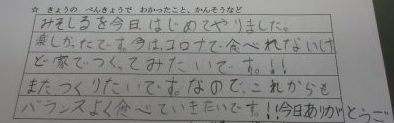 ☆ きょうの べんきょうで わかったこと、かんそうなど
みそしるを今日、はじめてやりました。
楽しかったです。今は、コロナで食べれないけ
ど家でつくってみたいです。!!
またつくりたいです。なので、これからも
バランスよく食べていきたいです。!!今日ありがとうご